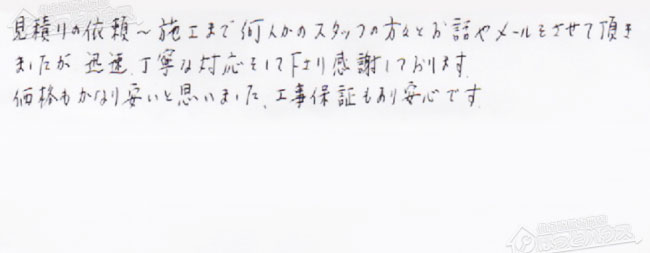 見積りの依頼～施工まで何人かのスタッフの方々とお話やメールをさせて頂き
ましたが 迅速、丁寧な対応をして下さり感謝しております。
価格もかなり安いと思いました、工事保証もあり安心です。